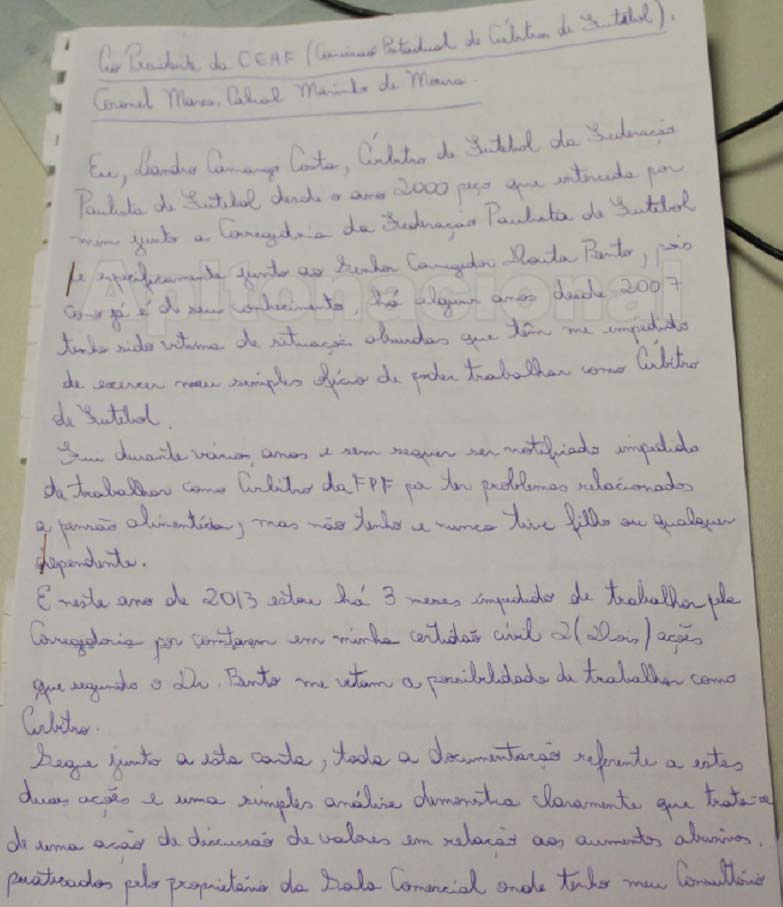 Ao Presidente da CEAF (Comissão Estadual de Árbitros de Futebol),
Coronel Marcos Cabral Marinho de Moura.
Eu, Leandro Camargo Costa, Árbitro de Futebol da Federação
Paulista de Futebol desde o ano 2000 peço que interceda por
mim junto a Corregedoria da Federação Paulista de Futebol
e especificamente junto ao Senhor Corregedor Bento, pois
como já é do seu conhecimento, há alguns anos desde 2007
tenho sido vítima de situações absurdas que têm me impedido
de exercer meu simples ofício de poder trabalhar como Árbitro
de Futebol.
Fui durante vários anos e sem sequer ser notificado impedido
de trabalhar como Árbitro da FPF por ter problemas relacionados
a pensão alimentícia, mas não tenho e nunca tive filho ou qualquer
dependente.
E neste ano de 2013 estou há 3 meses impedido de trabalhar pela
Corregedoria por constarem em minha certidão cívil 2 (Dois) ações
que segundo o Dr. Bento me vetam a possibilidade de trabalhar como
Árbitro.
Segue junto a esta carta, toda a documentação referente a estas
duas ações e uma simples análise demonstra claramente que trata-se
de uma ação de discussão de valores em relação aos aumentos abusivos,
praticados pelo proprietário da Sala Comercial onde tenho meu Consultório
Apitonacional